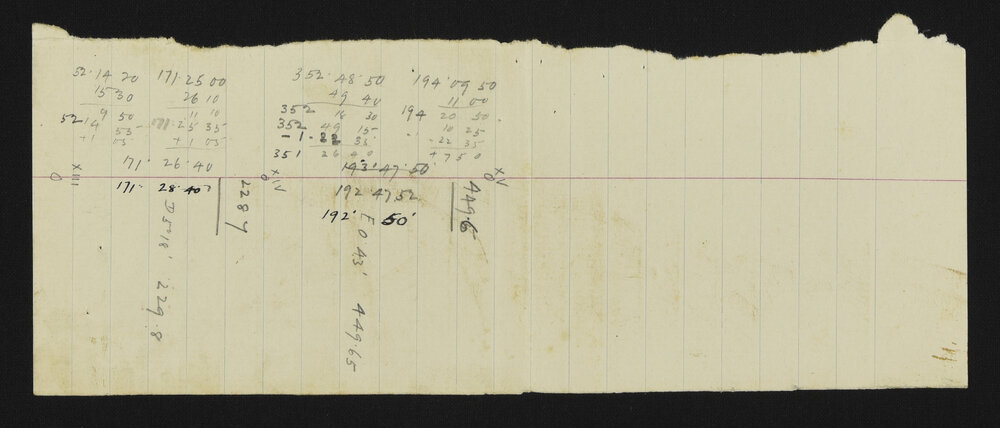 52·14 20 171·25 00 352·48·50 194·09 50
15 30 26 10 49 40 11 00
9 50 11 10 352 18 30 194 20 50
52 14 55 171·25 35 352 49 15 10 25
+1 05 +1 05 -1·22 35 -22 35
171· 26·40 351 26 40 +7 50
193' 47·50
XIII 0
XIV 0
XV 0
171· 28·40 192 47 52
192' 50'
2284
4496
229.8
E 0 43' 449.65